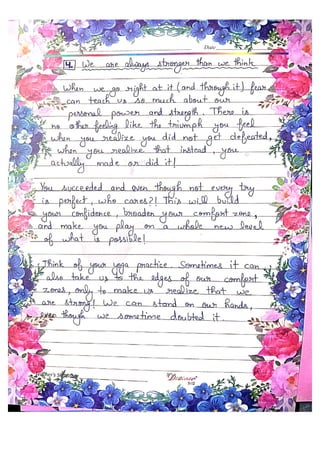 Date
4. We are always stronger than we think
When we go right at it (and through it) fear
can teach us so much about our
personal power and strength. There is
no other feeling like the triumph you feel
when you realize you did not get defeated,
when you realize that instead, you
actually made or did it!
You succeeded and even though not every try
is perfect, who cares?! This will build
your confidence, broaden your comfort zone,
and make you play on a whole new level
of what is possible!
Think of your yoga practice. Sometimes it can
also take us to the edges of our comfort
zones, only to make us realize that we
are strong! We can stand on our hands,
even though we sometime doubted it.